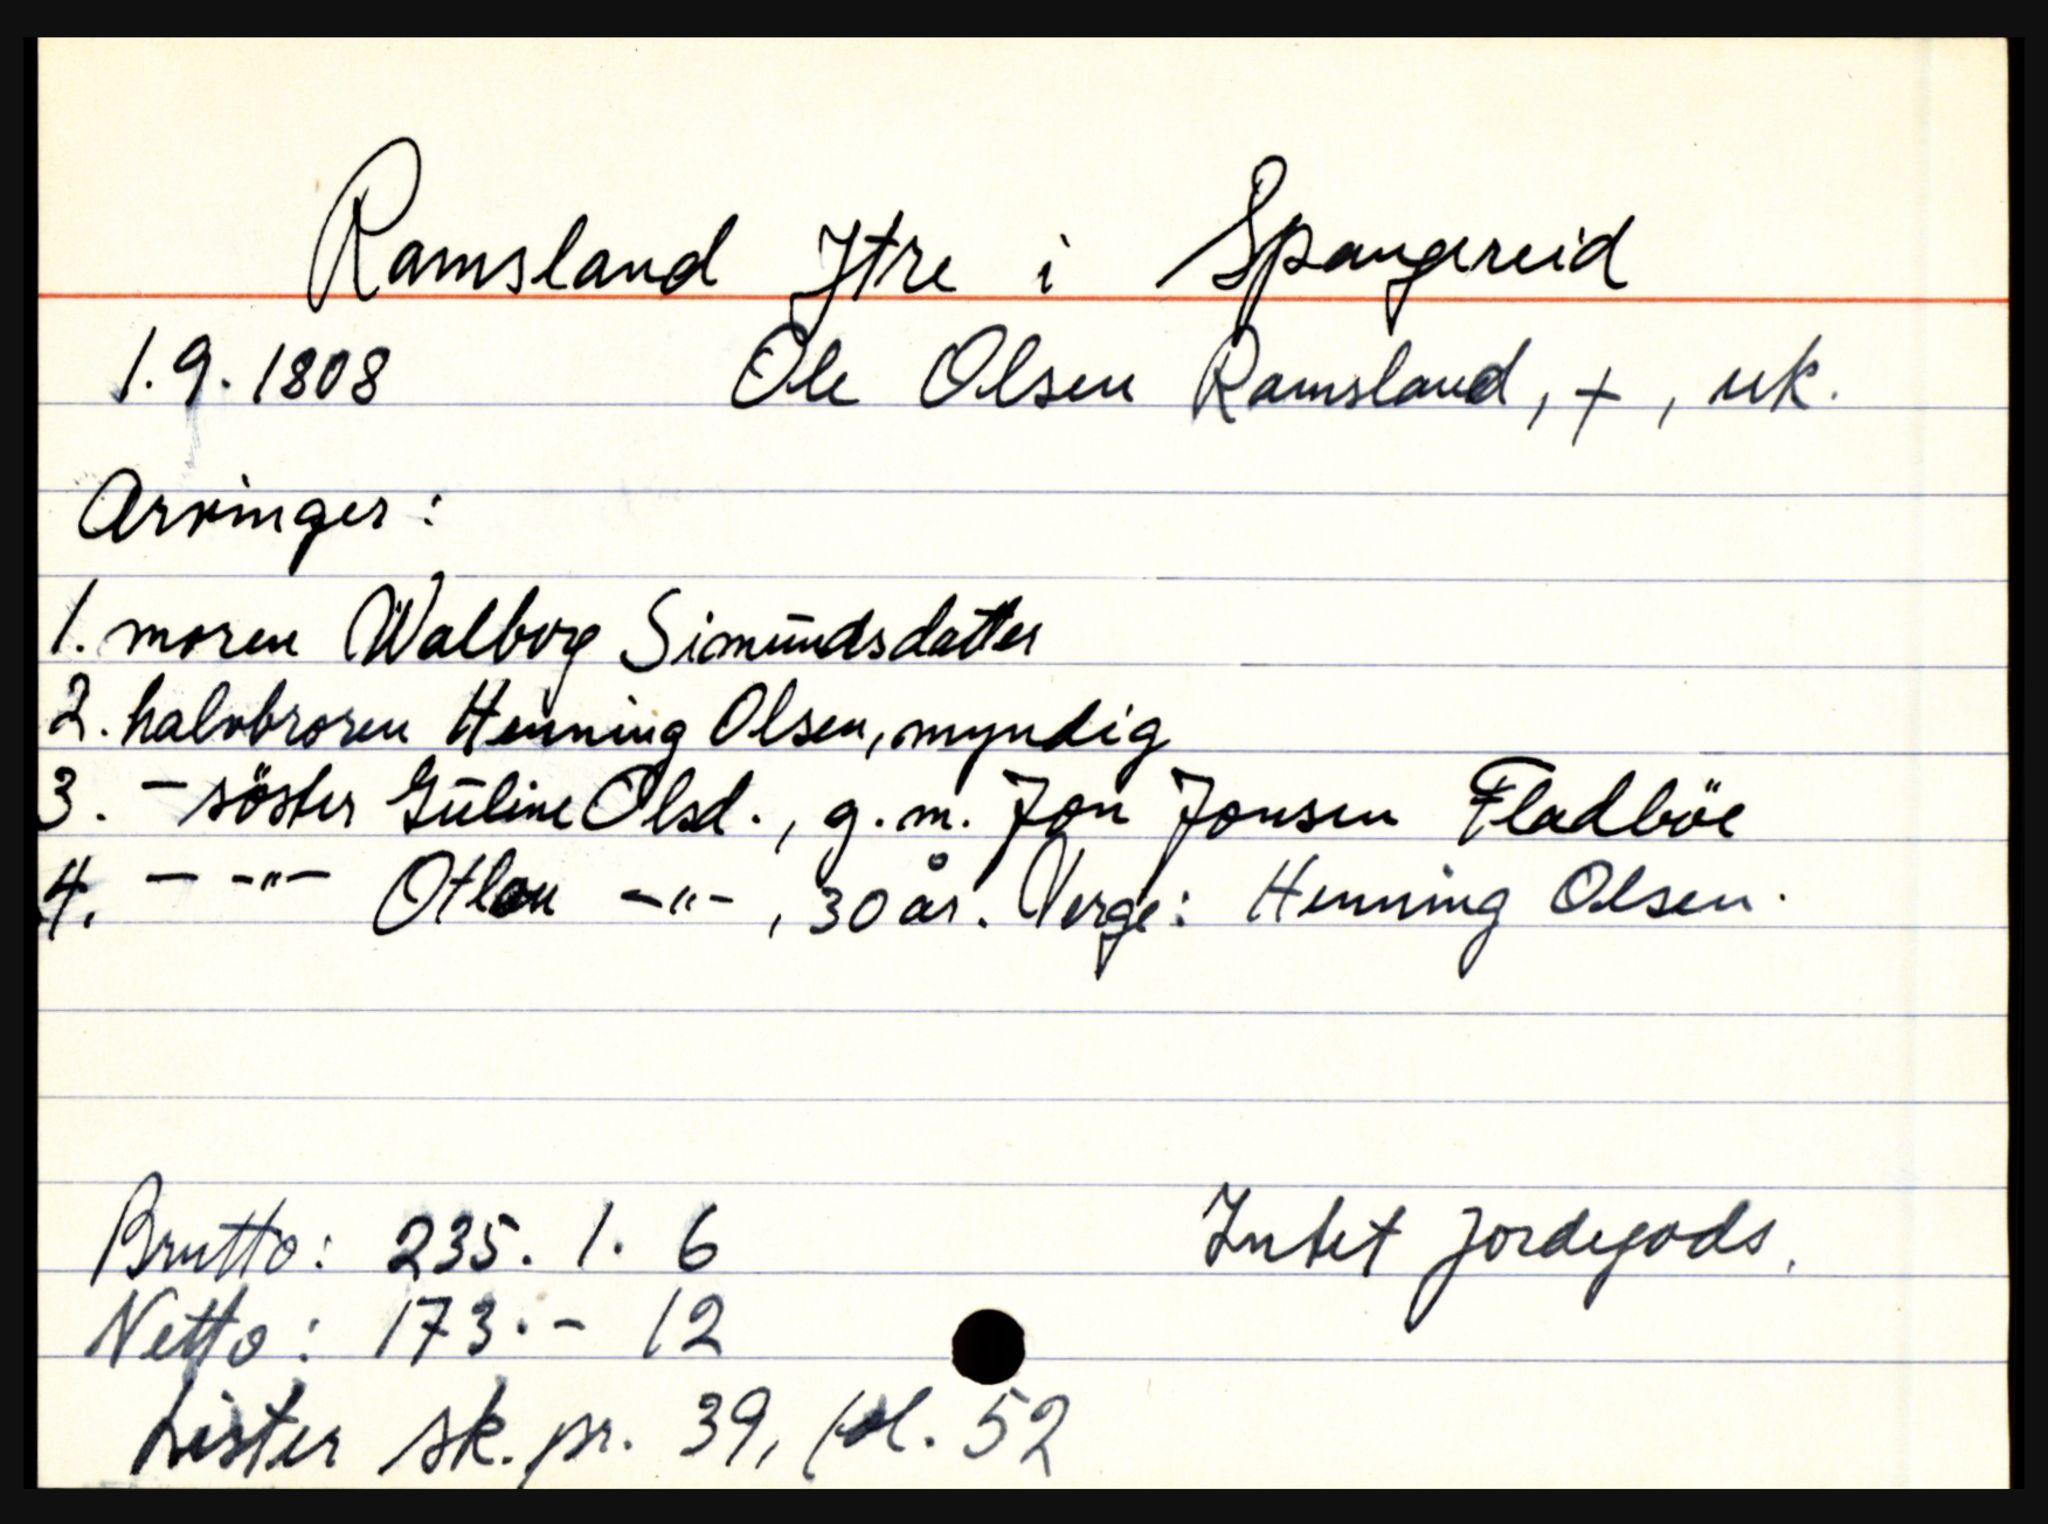 Ramsland Ytre i Spangereid
1.9.1808 Ole Olsen Ramsland, +, uk.
Arvinger:
1. moren Walborg Simūndsdatter
2. halvbroren Henning Olsen, myndig
3. - söster Gūline Olsd., g.m. Jon Jonsen Fladböe
4. - -"- -"-, 30 år. Verge: Henning Olsen.
Brutto: 235. 1. 6 Intet jordegods.
Netto: 173. - 12
Lister sk.pr. 39, fol. 52